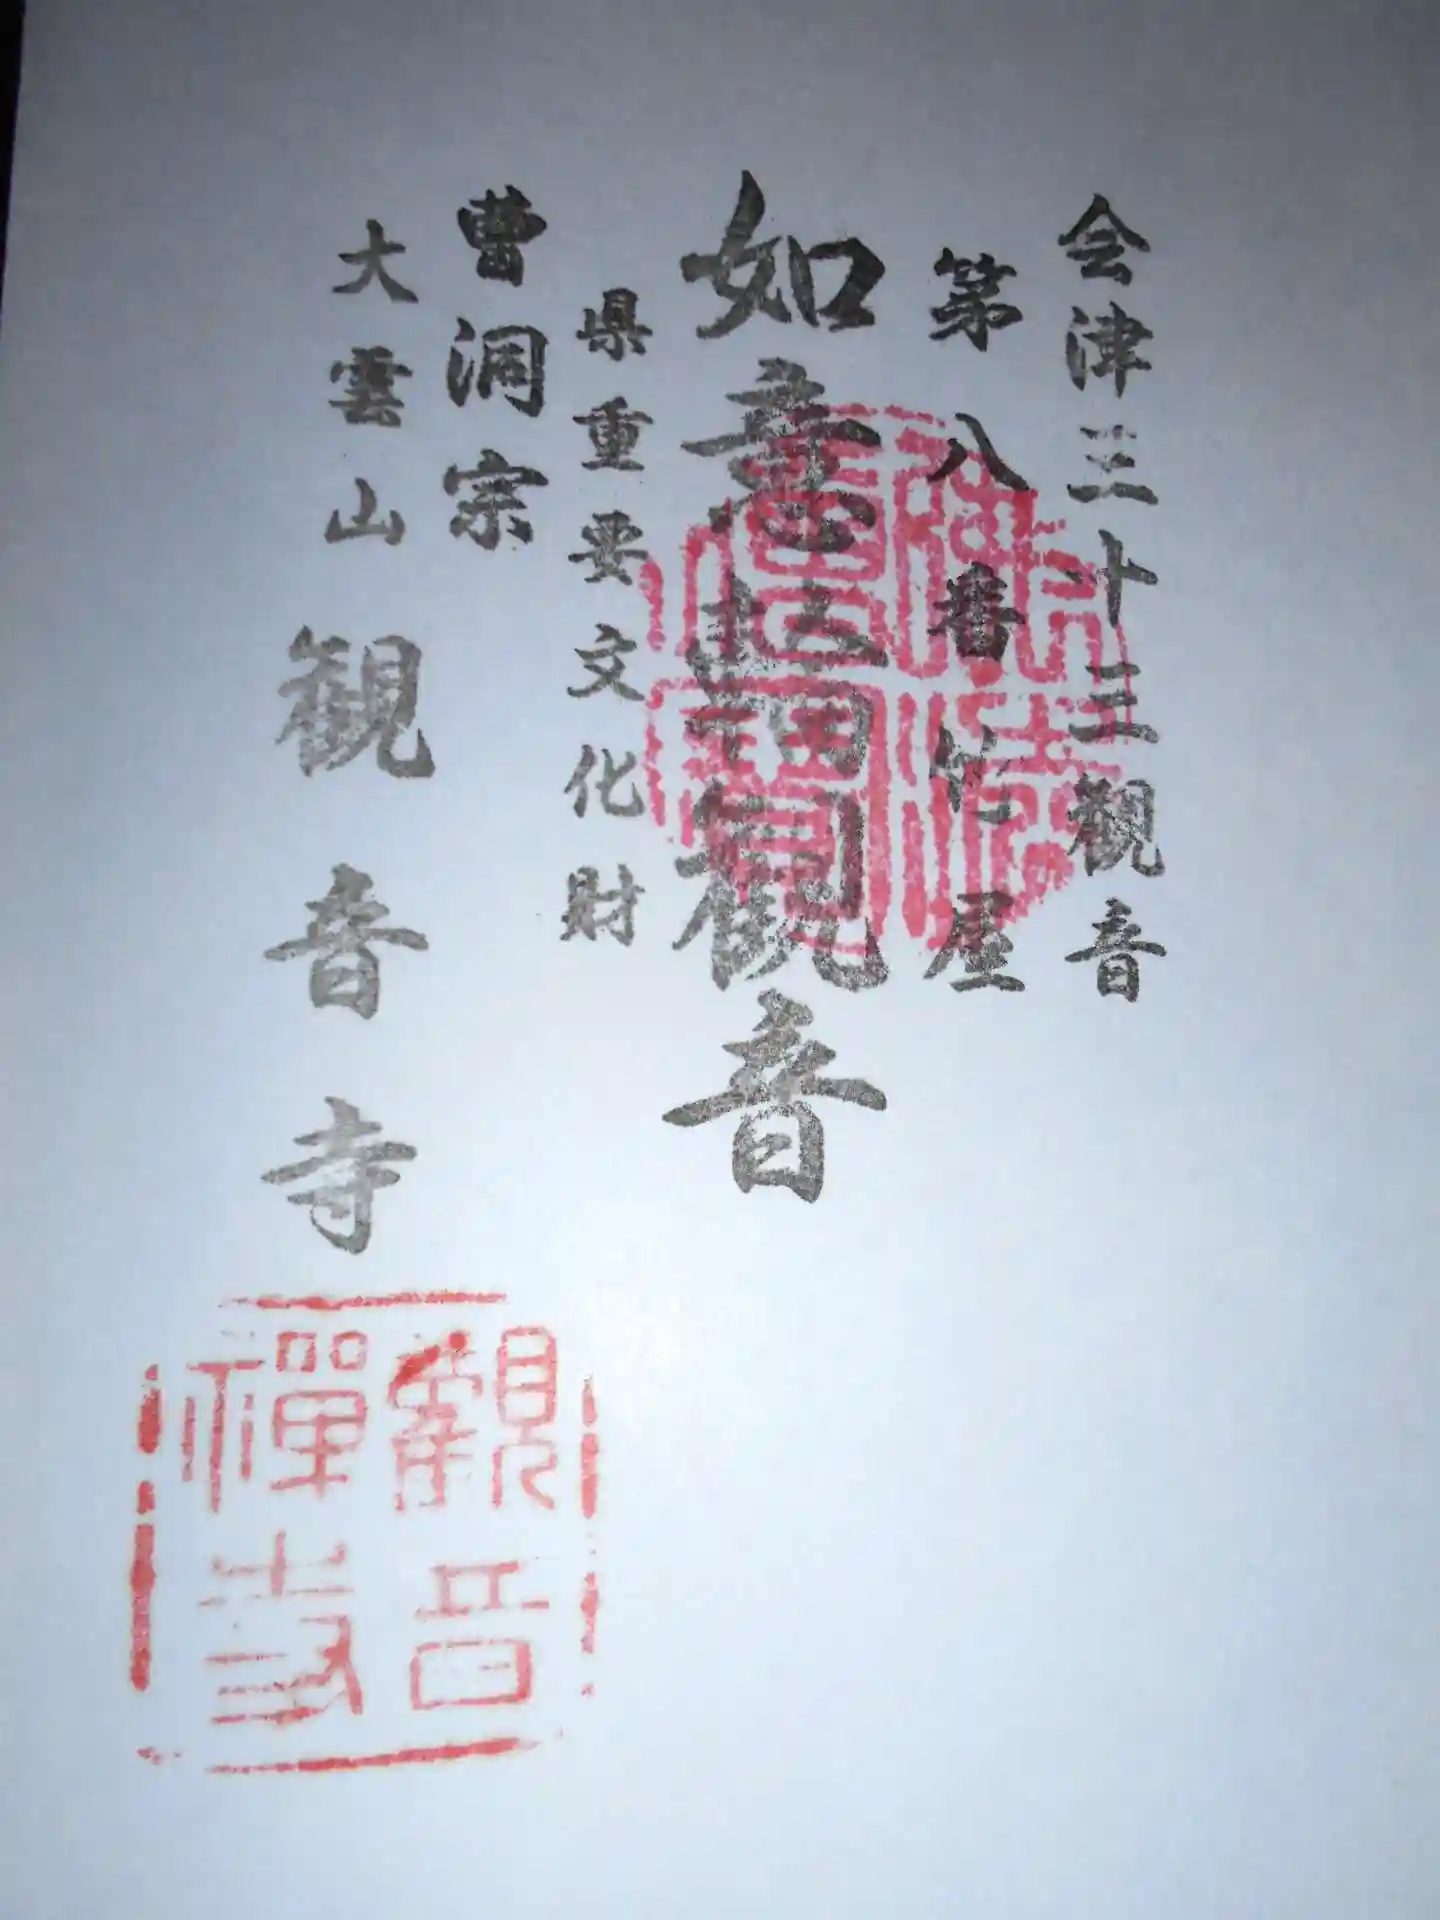 会津三十三観音
第八番竹屋
如意輪観音
県重要文化財
曹洞宗
大雲山
観音寺
佛法僧寶
觀音
禪寺